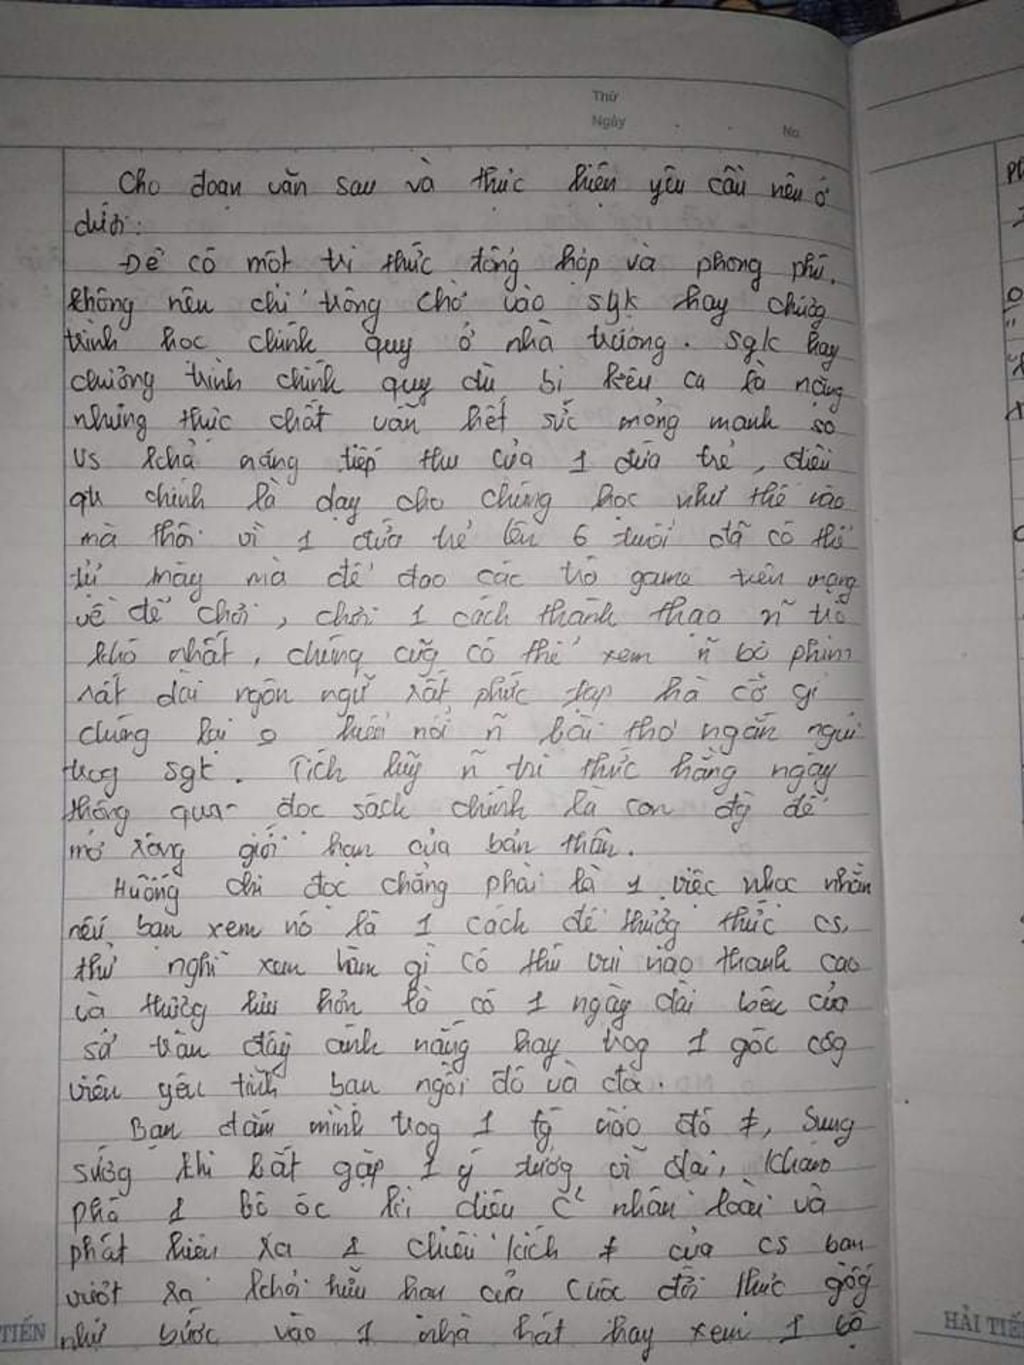 Thứ
Ngày
No
Cho đoạn văn sau và thực hiện yêu cầu nêu ở
dưới:
Để có một tri thức tổng hợp và phong phú,
không nên chỉ trông chờ vào sgk hay chương
trình học chính quy ở nhà trường. Sgk hay
chương trình chính quy dù bị kêu ca là nặng
nhưng thực chất vẫn hết sức mỏng manh so
vs khả năng tiếp thu của 1 đứa trẻ, điều
qtr chính là dạy cho chúng học như thế nào
mà thôi vì 1 đứa trẻ lên 6 tuổi đã có thể
tự mày mà để đao các trò game trên mạng
về để chơi, chơi 1 cách thành thạo ñ trò
khó nhất, chúng cũg có thể xem ñ bộ phim
rất dài ngôn ngữ rất phức tạp hà cớ gì
chúng lại o hiểu nổi ñ bài thơ ngắn ngủi
trog sgk. Tích lũy ñ tri thức hằng ngày
thông qua đọc sách chính là con đg để
mở rộng giới hạn của bản thân.
Huống chi đọc chẳng phải là 1 việc nhọc nhằn
nếu bạn xem nó là 1 cách để thưởg thức cs,
thử nghĩ xem làm gì có thú vui nào thanh cao
và thường hữu hơn là có 1 ngày dài bên cửa
sổ tràn đầy ánh nắng hay trog 1 góc côg
viên yên tĩnh bạn ngồi đó và đọc.
Bạn đắm mình trog 1 tg nào đó ≠, Sung
sướg khi bắt gặp 1 ý tưởg vĩ đại, Khám
phá 1 bộ óc kì diệu nhân loại và
phát hiện ra 1 chiều kích ≠ của cs bạn
vượt ra khỏi hữu hạn của cuộc đời thực giốg
như bước vào 1 nhà hát hay xem 1 bộ
TIẾN
HẢI TIẾ